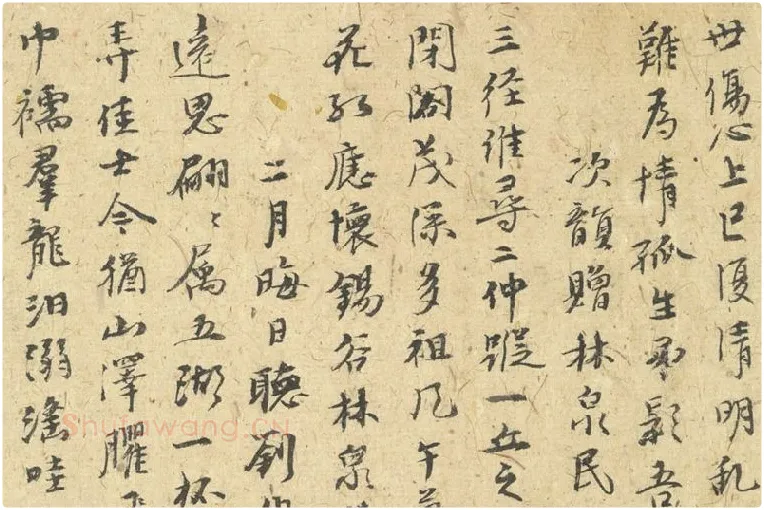 世傷心上巳復清明乱
難為情孤生早影吾
次韻贈林泉民
三径誰尋二仲蹤一丘之
閉閣茂深多祖几午
花紅應懷錫谷林泉
二月晦日聽劉
遠思翩〻属五湖一杯
弄佳士今猶山澤臞
巾襦群龍汨溺滛哇
Shufawang.cn